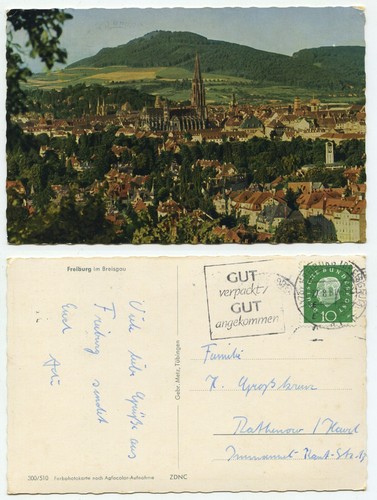 Freiburg im Breisgau
GUT
verpackt/
GUT
angekommen
DEUTSCHE BUNDESPOST
10
Viele liebe Grüße aus
Freiburg sendet
Euch
Familie
K. Großkreuz
Rathenow / Havel
Immanuel-Kant-Str.
Gebr. Metz, Tübingen
300/510 Farbphotokarte nach Agfacolor-Aufnahme ZDNC